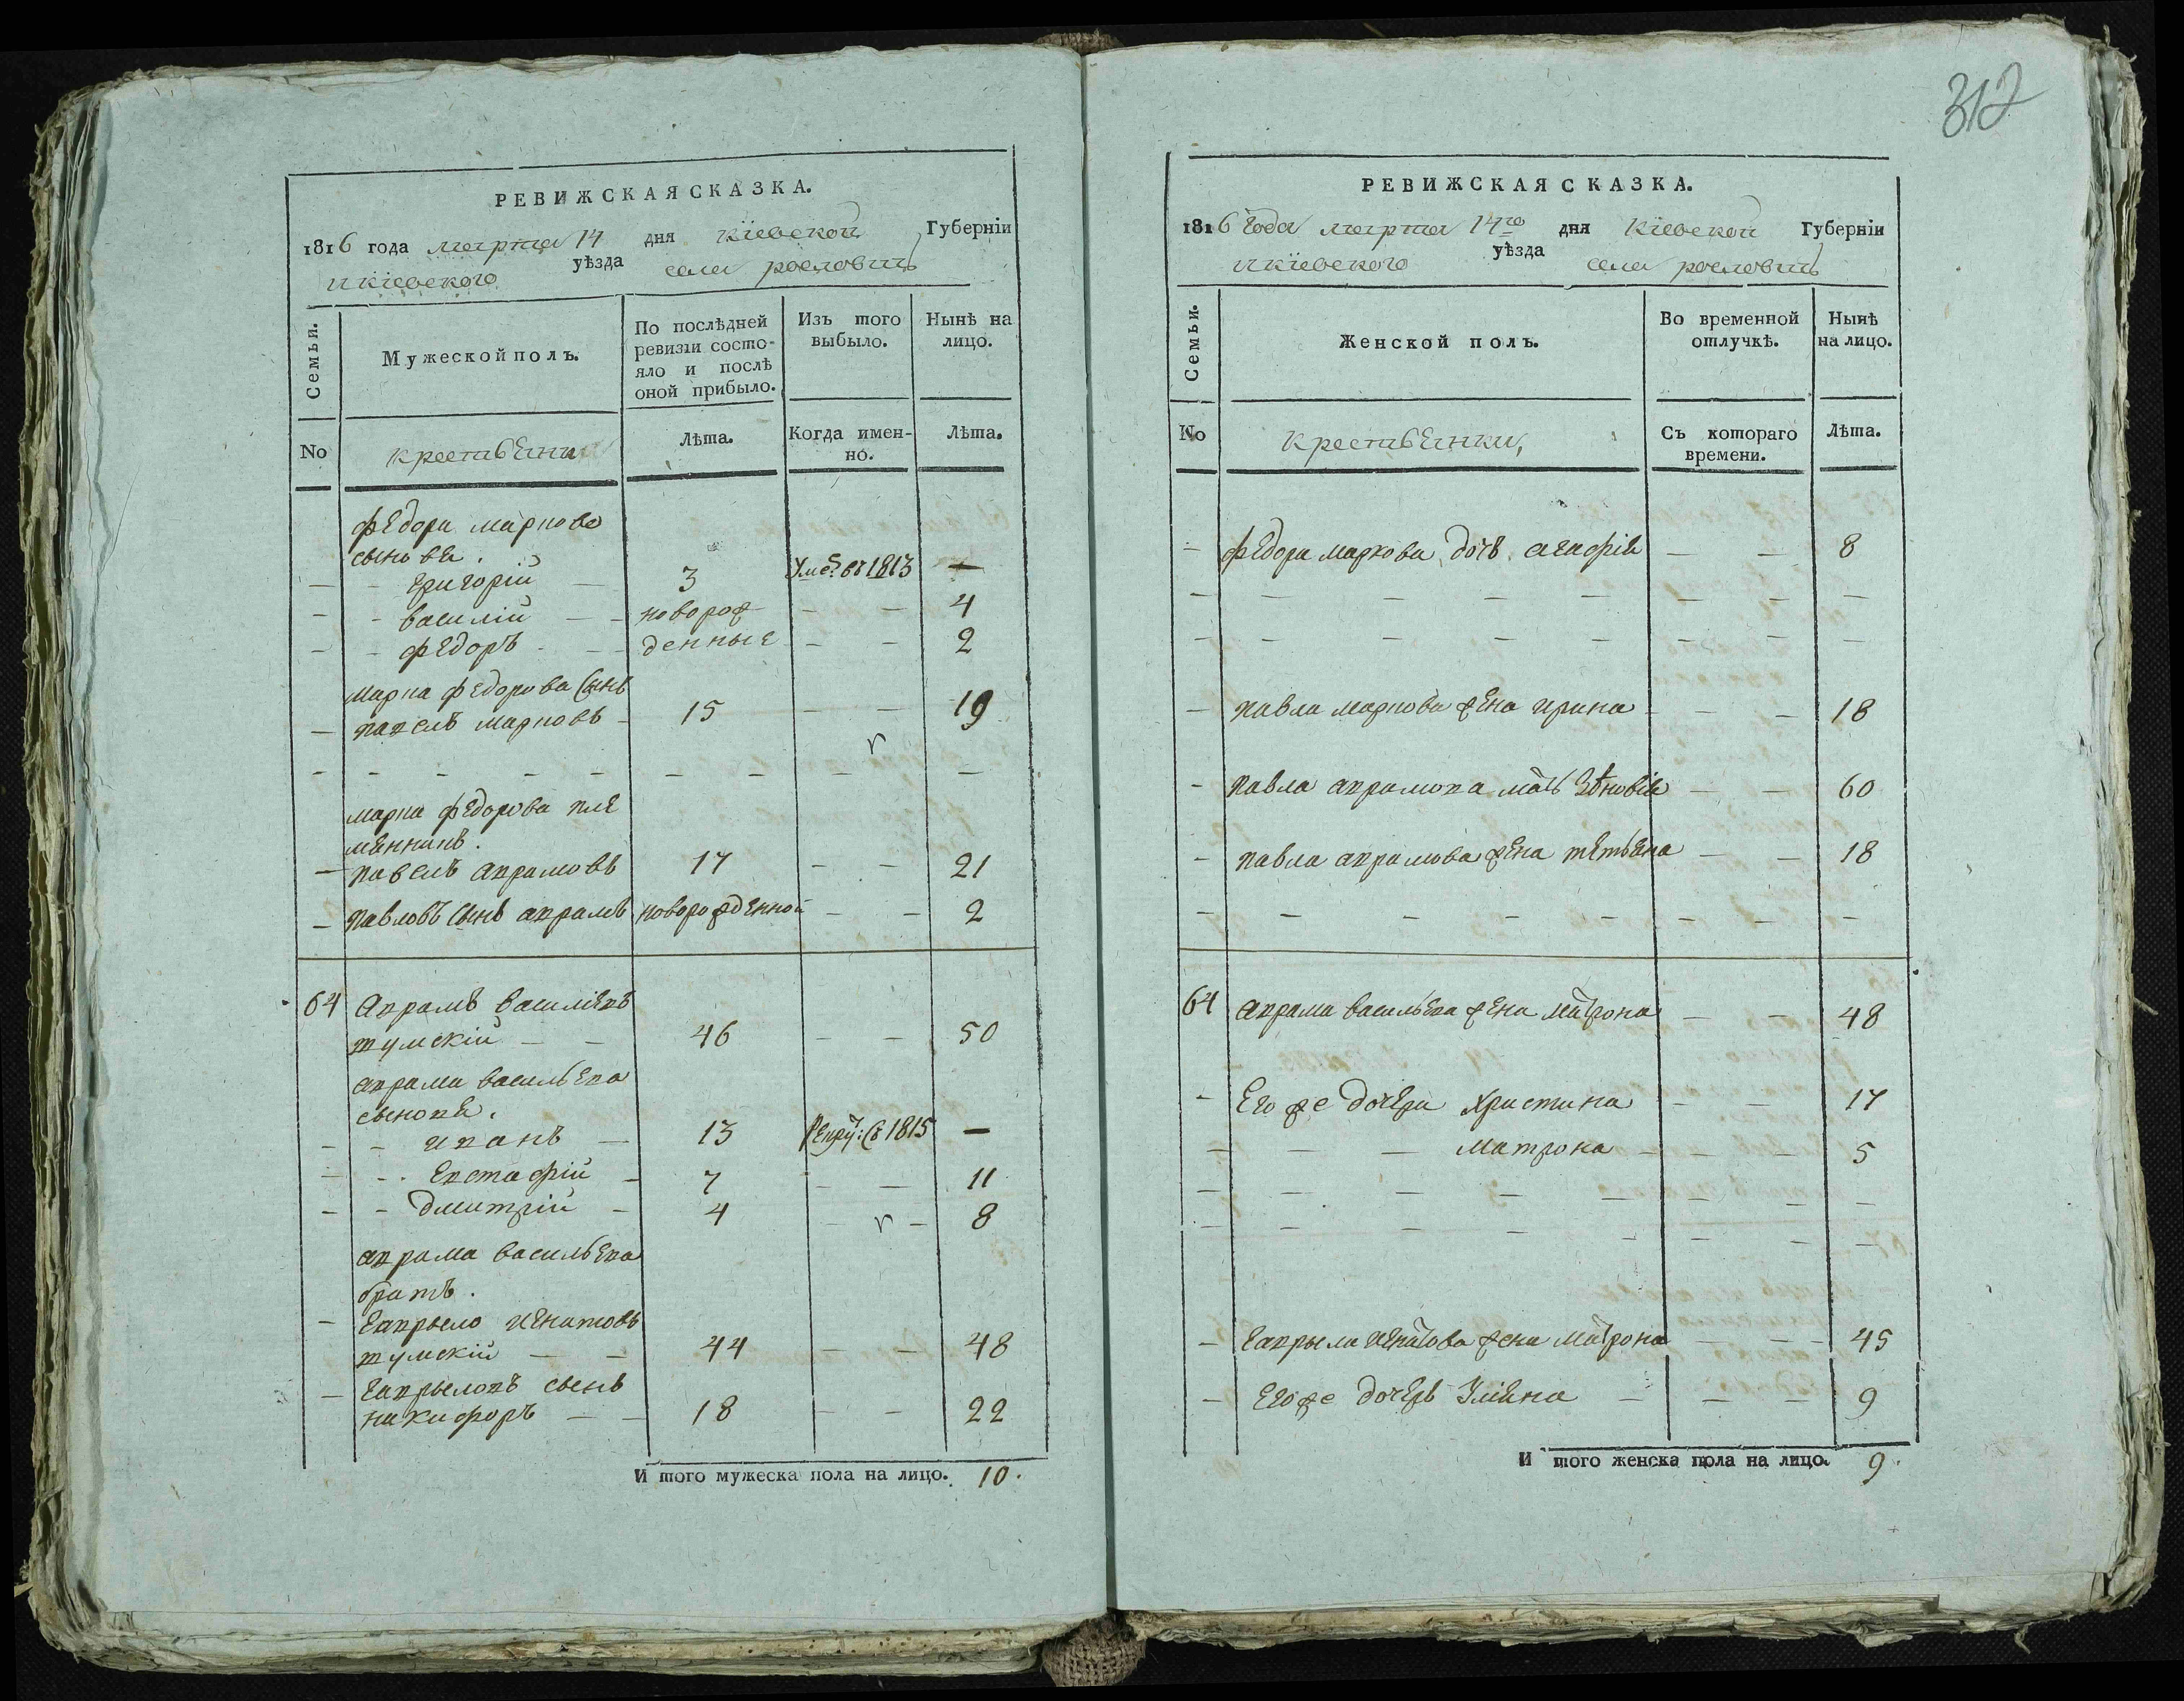 312
РЕВИЖСКАЯ СКАЗКА.
1816 года марта 14 дня кіевской Губерніи
и кіевского уѣзда села рословичь
Семьи.
Мужеской полъ.
По послѣдней ревизіи состо-
яло и послѣ
оной прибыло.
Изъ того
выбыло.
Нынѣ на
лицо.
No
крестьяни
Лѣта.
Когда имен-
но.
Лѣта.
федора маркова
сыновья.
— - григорій — 3 — —
- - василій — - новорож — — 4
- - федоръ - - денные — — 2
марка федорова сынъ
— павелъ марковъ - 15 — — 19
- - - - - - - - -
марка федорова пле
менникъ.
— павелъ аврамовъ 17 - - 21
— павловъ сынъ аврамъ новорожденной — - 2
64 Аврамъ василіевъ
тумскій — — 46 — — 50
аврама васильева
сыновья.
- - иванъ — 13 рекру: въ 1815 —
- - евстафій - 7 — — 11
- - дмитрій - 4 — - 8
аврама васильева
братъ.
- гаврыло игнатовъ
тумскій — — 44 — — 48
- гаврыловъ сынъ
никифоръ — — 18 — — 22
И того мужеска пола на лицо. 10.
РЕВИЖСКАЯ СКАЗКА.
1816 года марта 14го дня кіевской Губерніи
и кіевского уѣзда села рословичь
Семьи.
Женской полъ.
Во временной
отлучкѣ.
Нынѣ
на лицо.
No
крестьянки,
Съ котораго
времени.
Лѣта.
- федора маркова дочь агафія — — 8
— — — — — — — — —
- - - - - - - - —
- павла маркова жена ирина - - — 18
- павла аврамова мать зѣновія — — 60
- павла аврамова жена тетьяна — — 18
- - - - - - - - -
64 аврама васильева жена матрона — — 48
- Его же дочери христина — — 17
- — — матрона — — — 5
— — — — — — — — —
- - - - - - - - -
- гаврыла игнатова жена матрона — — 45
- Его же дочерь Уліяна — — — 9
И того женска пола на лицо. 9.